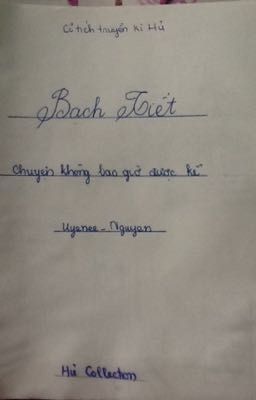 Cổ tích truyền kì Hủ
Bạch Tuyết
Chuyện không bao giờ được kể
Uyenee - Nguyen
Hủ Collection